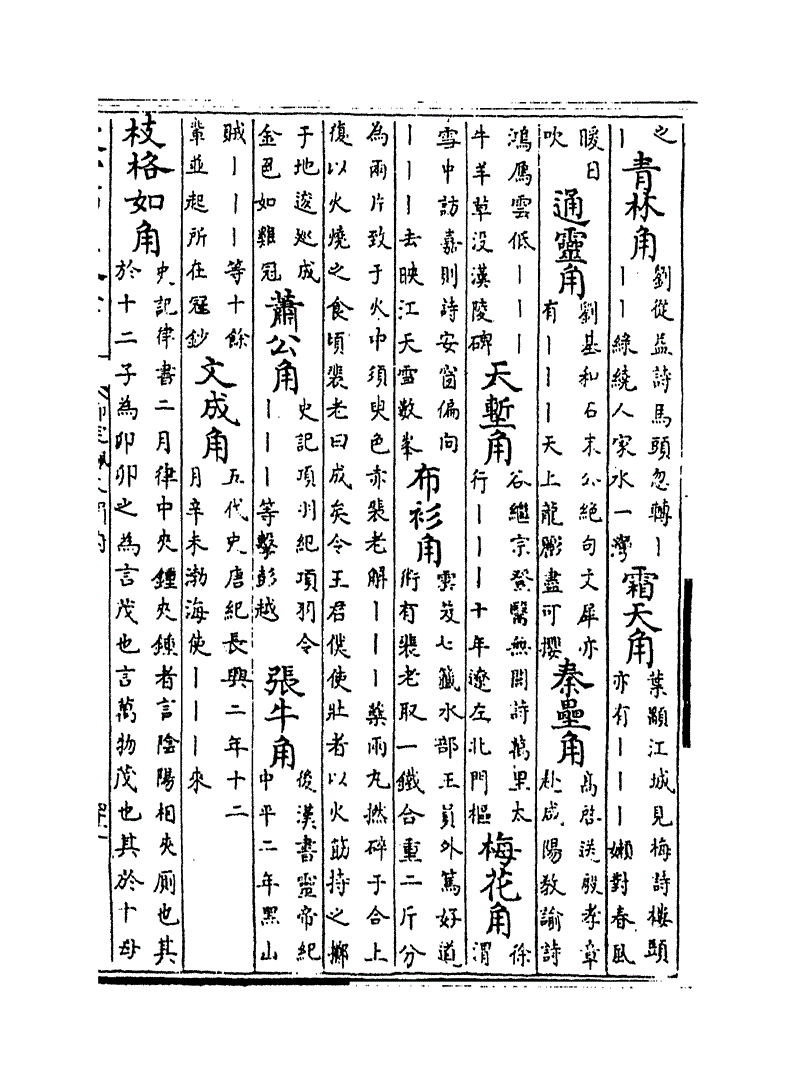 之｜青林角劉從益詩馬頭忽轉｜｜｜綠繞人家水一灣霜天角葉顒江城見梅詩樓頭亦有｜｜｜嬾對春風
暖日吹通靈角劉基和石末公絕句文犀亦有｜｜｜天上龍彫盡可攖秦壘角髙啓送殷孝章赴咸陽教諭詩
鴻鴈雲低｜｜｜牛羊草沒漢陵碑天塹角谷繼宗登醫無閭詩萬里太行｜｜｜十年遼左北門樞梅花角徐渭
雪中訪嘉則詩安窗偏向｜｜｜去映江天雪數峯布衫角雲笈七籤水部王員外篤好道術有裴老取一鐵合重二斤分
為兩片致于火中須臾色赤裴老解｜｜｜藥兩丸撚碎于合上復以火燒之食頃裴老曰成矣令王君僕使壯者以火筯持之擲
于地逡巡成金色如雞冠蕭公角史記項羽紀項羽令｜｜｜等擊彭越張牛角後漢書靈帝紀中平二年黑山
賊｜｜｜等十餘輩並起所在冦鈔文成角五代史唐紀長興二年十二月辛未渤海使｜｜｜來
枝格如角史記律書二月律中夾鍾夾鍾者言陰陽相夾厠也其於十二子為卯卯之為言茂也言萬物茂也其於十母